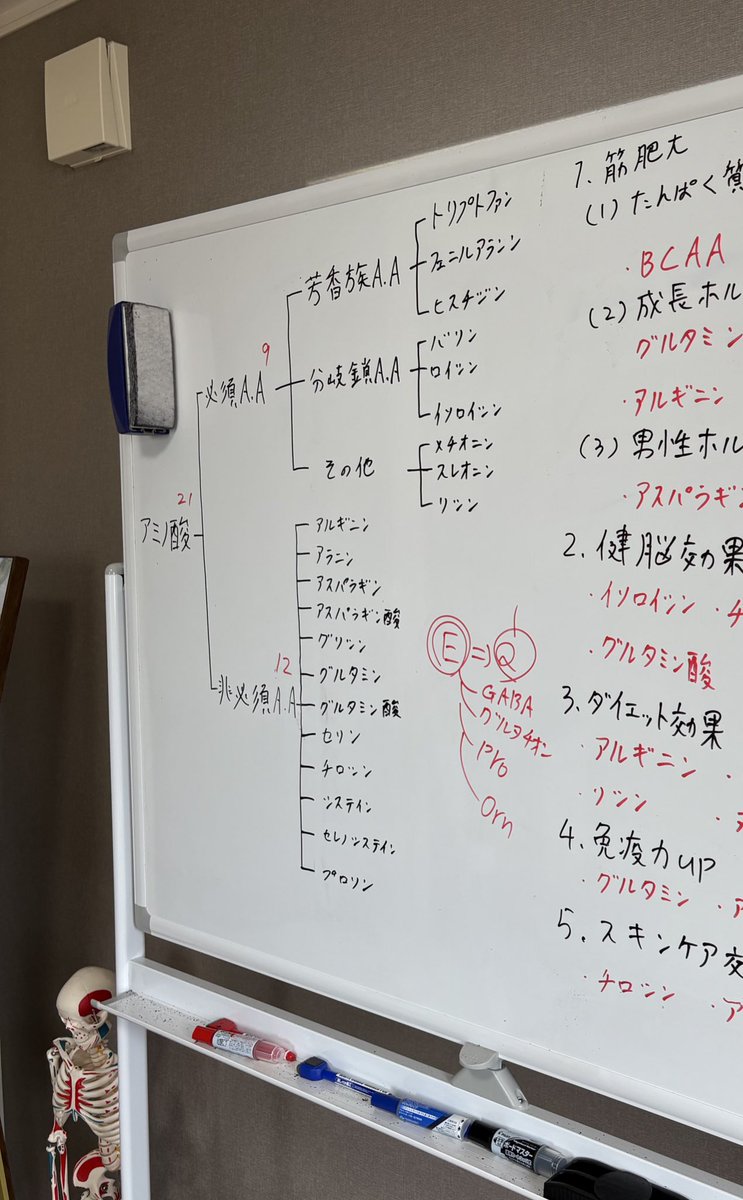 アミノ酸
21
必須A.A
9
芳香族A.A
トリプトファン
フェニルアラニン
ヒスチジン
分岐鎖A.A
バリン
ロイシン
イソロイシン
その他
メチオニン
スレオニン
リシン
非必須A.A
12
アルギニン
アラニン
アスパラギン
アスパラギン酸
グリシン
グルタミン
グルタミン酸
セリン
チロシン
システイン
セレノシステイン
プロリン
E ⇒ Q
GABA
グルタチオン
Pro
Orn
1. 筋肥大
(1) たんぱく質
・BCAA
(2) 成長ホル
グルタミン
・アルギニン
(3) 男性ホル
・アスパラギン
2. 健脳効果
・イソロイシン ・チ
・グルタミン酸
3. ダイエット効果
・アルギニン ・
・リシン ・
4. 免疫力UP
・グルタミン ・ア
5. スキンケア効
・チロシン ・ア
ボードマスター